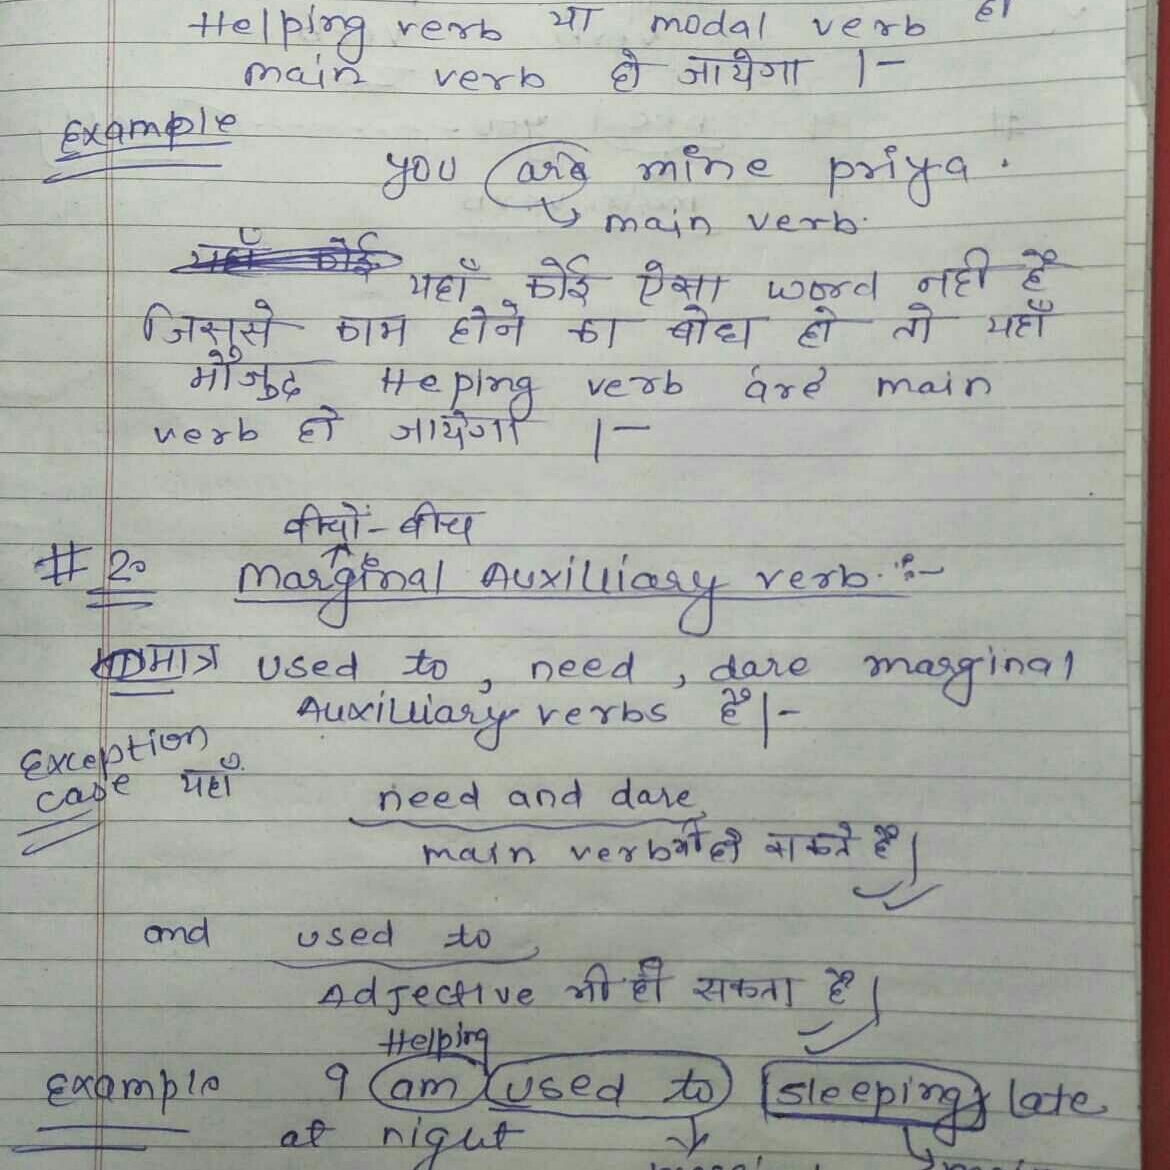 Helping verb या modal verb ही
main verb हो जायेगा ।-
Example
you are mine priya.
main verb.
यहाँ कोई
यहाँ कोई ऐसा word नही है
जिससे काम होने का बोध हो तो यहाँ
मौजूद Heping verb are main
verb हो जायेगा ।-
बीचों-बीच
# 2. Marginal Auxilliary verb :-
मात्र used to, need, dare marginal
Auxilliary verbs है।-
Exception
case यहाँ
need and dare
main verb भी हो सकते है।
and used to
Adjective भी हो सकता है।
Helping
Example I am used to sleeping late
at night